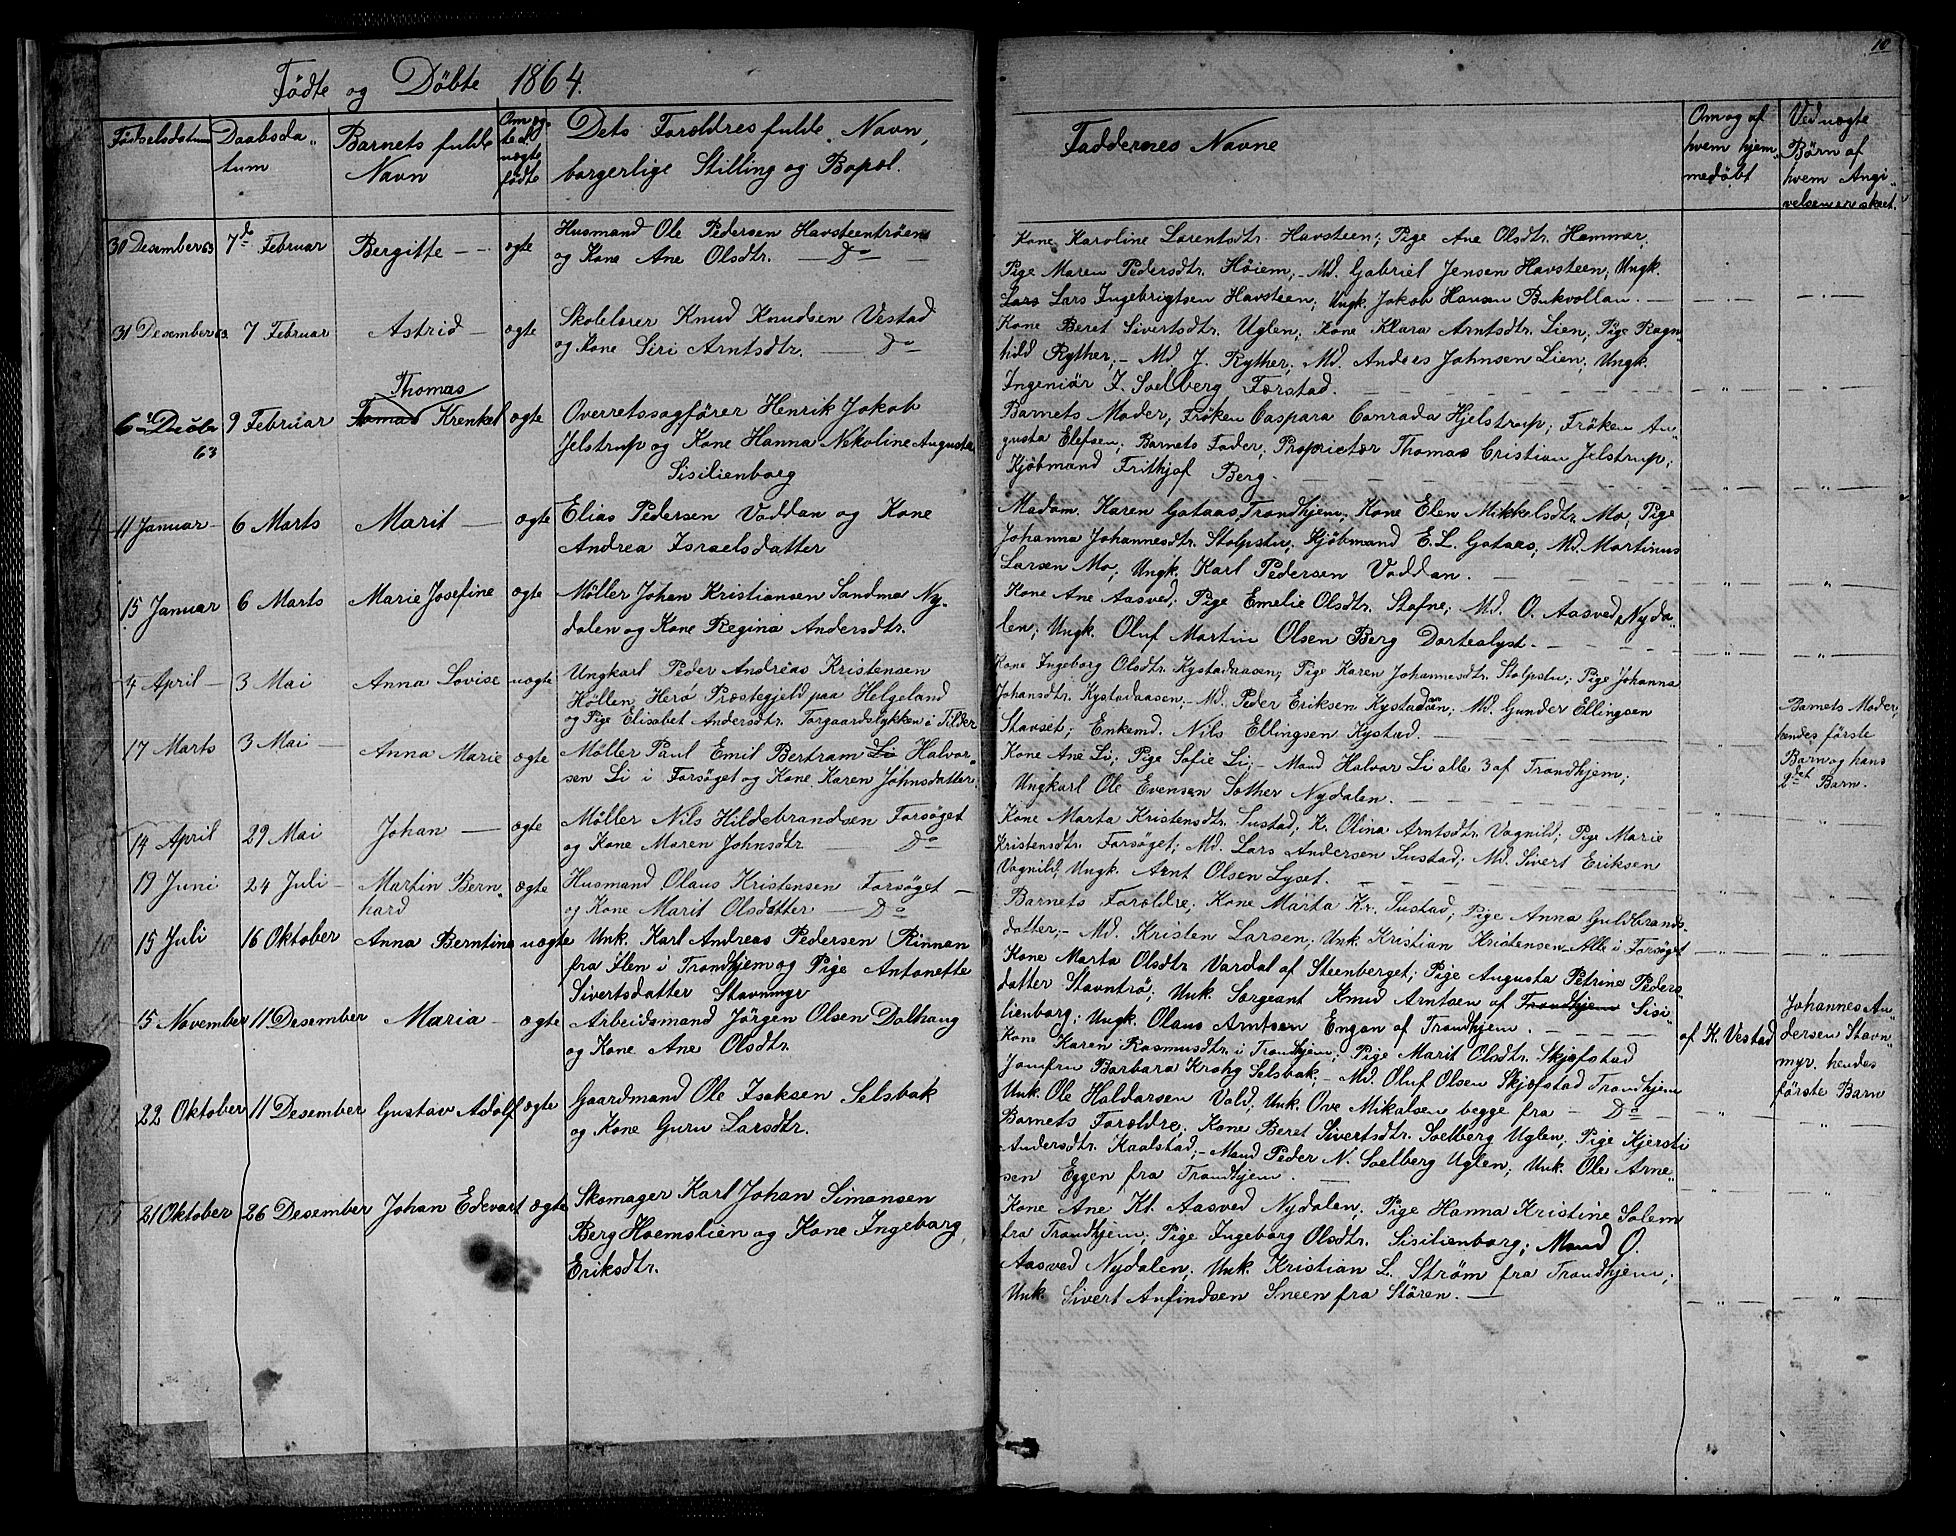 Födte og Döbte 1864.
Födselsdatum
Daabsda„
tum
Barnets fulde
Navn
Om og„
te el.
uægte
födte
Dets Forældres fulde Navn,
borgerlige Stilling og Bopæl.
30 Desember 63 7de Februar Bergitte — ægte Husmand Ole Pedersen Havsteentrøen
og Kone Ane Olsdtr. — Do —
31 Desember 63 7 Februar Astrid — ægte Skolelærer Knud Knudsen Vestad
og Kone Siri Arntsdtr. — Do
Thomas
63 9 Februar Tomas Krenkel ægte Overretssagfører Henrik Jakob
Jelstrup og Kone Hanna Nekoline Augusta
Sisilienborg
11 Januar — 6 Marts Marit — ægte Elias Pedersen Vaddan og Kone
Andrea Israelsdatter
15 Januar 6 Marts Marie Josefine ægte Møller Johan Kristiansen Sandmo Ny„
dalen og Kone Regina Andersdtr.
4 April — 3 Mai Anna Lovise uægte Ungkarl Peder Andreas Kristensen
Høllen, Herø Præstegjeld paa Helgeland
og Pige Elisabet Andersdtr. Torgaardslykken i Tilder
17 Marts 3 Mai — Anna Marie ægte Møller Paul Emil Bertram Li Halvor„
sen Li i Forsøget og Kone Karen Johnsdatter
14 April 29 Mai Johan — ægte Møller Nils Hildebrandsen Forsøget
og Kone Maren Johnsdtr — Do
19 Juni 24 Juli — Martin Bern„ ægte Husmand Olaus Kristensen Forsöget —
hard og Kone Marit Olsdatter — Do
10 15 Juli 16 Oktober Anna Berntine uægte Unk. Karl Andreas Pedersen Rinnan
fra Ilen i Trondhjem og Pige Antonette
Sivertsdatter Stavnmyr
15 November 11 Desember Maria — ægte Arbeidsmand Jörgen Olsen Dalhaug
og Kone Ane Olsdtr.
22 Oktober 11 Desember Gustav Adolf ægte Gaardmand Ole Isaksen Selsbak
og Kone Guru Larsdtr.
21 Oktober 26 Desember Johan Edevart ægte Skomager Karl Johan Simonsen
Berg Hoemslien og Kone Ingeborg
Eriksdtr.
10
Faddernes Navne
Om og af
hvem hjem„
medöbt
Ved uægte
Börn af
hvem Angi„
velsen er skeet.
Kone Karoline Lorentsdtr. Havsteen; Pige Ane Olsdtr. Hammer,
Pige Maren Pedersdtr. Höiem; — Md. Gabriel Jensen Havsteen; Ungk.
Lars Lars Ingebrigtsen Havsteen; Ungk. Jakob Hansen Bukvollan. —
Kone Beret Sivertsdtr. Uglen; Kone Klara Arntsdtr. Lien; Pige Ragn„
hild Ryther; — Md. J. Ryther; Md. Anders Johnsen Lien; Ungk.
Ingeniör I. Soelberg Færstad.
Barnets Moder, Fröken Caspara Conrada Hjelstrup; Fröken Au„
gusta Elefsen; Barnets Fader; Proprietær Thomas Cristian Jelstrup;
Kjöbmand Frithjof Berg. —
Madam Karen Gataas Trondhjem; Kone Elen Mikkelsdtr. Mo; Pige
Johanna Johannesdtr. Stolpstu; Kjöbmand E. L. Gataas; Md. Martinus
Larsen Mo; Ungk. Karl Pedersen Vaddan. —
Kone Ane Aasved; Pige Emelie Olsdtr. Stafne; Md. O. Aasved Nyda„
len; Ungk. Oluf Martin Olsen Berg Dortealyst. —
Kone Ingeborg Olsdtr. Kystadaasen; Pige Karen Johannesdtr. Stolpstu; Pige Johanna
Johansdtr. Kystadaasen; — Md. Peder Eriksen Kystadaasen; Md. Gunder Ellingsen
Stavset; Enkemd. Nils Ellingsen Kystad. —
Kone Ane Li; Pige Sofie Li; — Mand Halvor Li alle 3 af Trondhjem;
Ungkarl Ole Evensen Sother Nydalen. —
Kone Marta Kristensdtr. Sustad; K. Olina Arntsdtr. Vognild; Pige Marie
Kristensdtr. Forsøget; Md. Lars Andersen Sustad; Md. Sivert Eriksen
Vognild, Ungk. Arnt Olsen Lyset. —
Barnets Forældre; Kone Marta Kr. Sustad; Pige Anna Guldbrands„
datter; — Md. Kristen Larsen; Unk. Kristian Kristensen Alle i Forsöget
Kone Marta Olsdtr. Vardal af Steenberget; Pige Augusta Petrine Peders„
datter Stavntrö; Unk. Sergeant Knud Arntsen af Trondhjem Sisi„
lienborg; Ungk. Olaus Arntsen Engan af Trondhjem. —
Kone Karen Rasmusdtr. i Trondhjem; Pige Marit Olsdtr. Skjefstad
Jomfru Barbara Krohg Selsbak; — Md. Oluf Olsen Skjefstad Trondhjem
Unk. Ole Haldorsen Vold; Unk. Ove Mikalsen begge fra — Do —
Barnets Forældre; Kone Beret Sivertsdtr. Soelberg Uglen; Pige Kjersti
Andersdtr. Kaalstad; — Mand Peder N. Soelberg Uglen; Unk. Ole Arne„
sen Eggen fra Trondhjem. —
Kone Ane Kl. Aasved Nydalen; Pige Hanna Kristine Solem
fra Trondhjem; Pige Ingeborg Olsdtr. Sisilienborg; Mand O.
Aasved Nydalen; Unk. Kristian L. Ström fra Trondhjem;
Unk. Sivert Anfindsen Sneen fra Stören. —
af K. Vestad
Barnets Moder,
hendes förste
Barn og hans
2det Barn.
Johannes An„
dersen Stavn„
myr, hendes
förste Barn